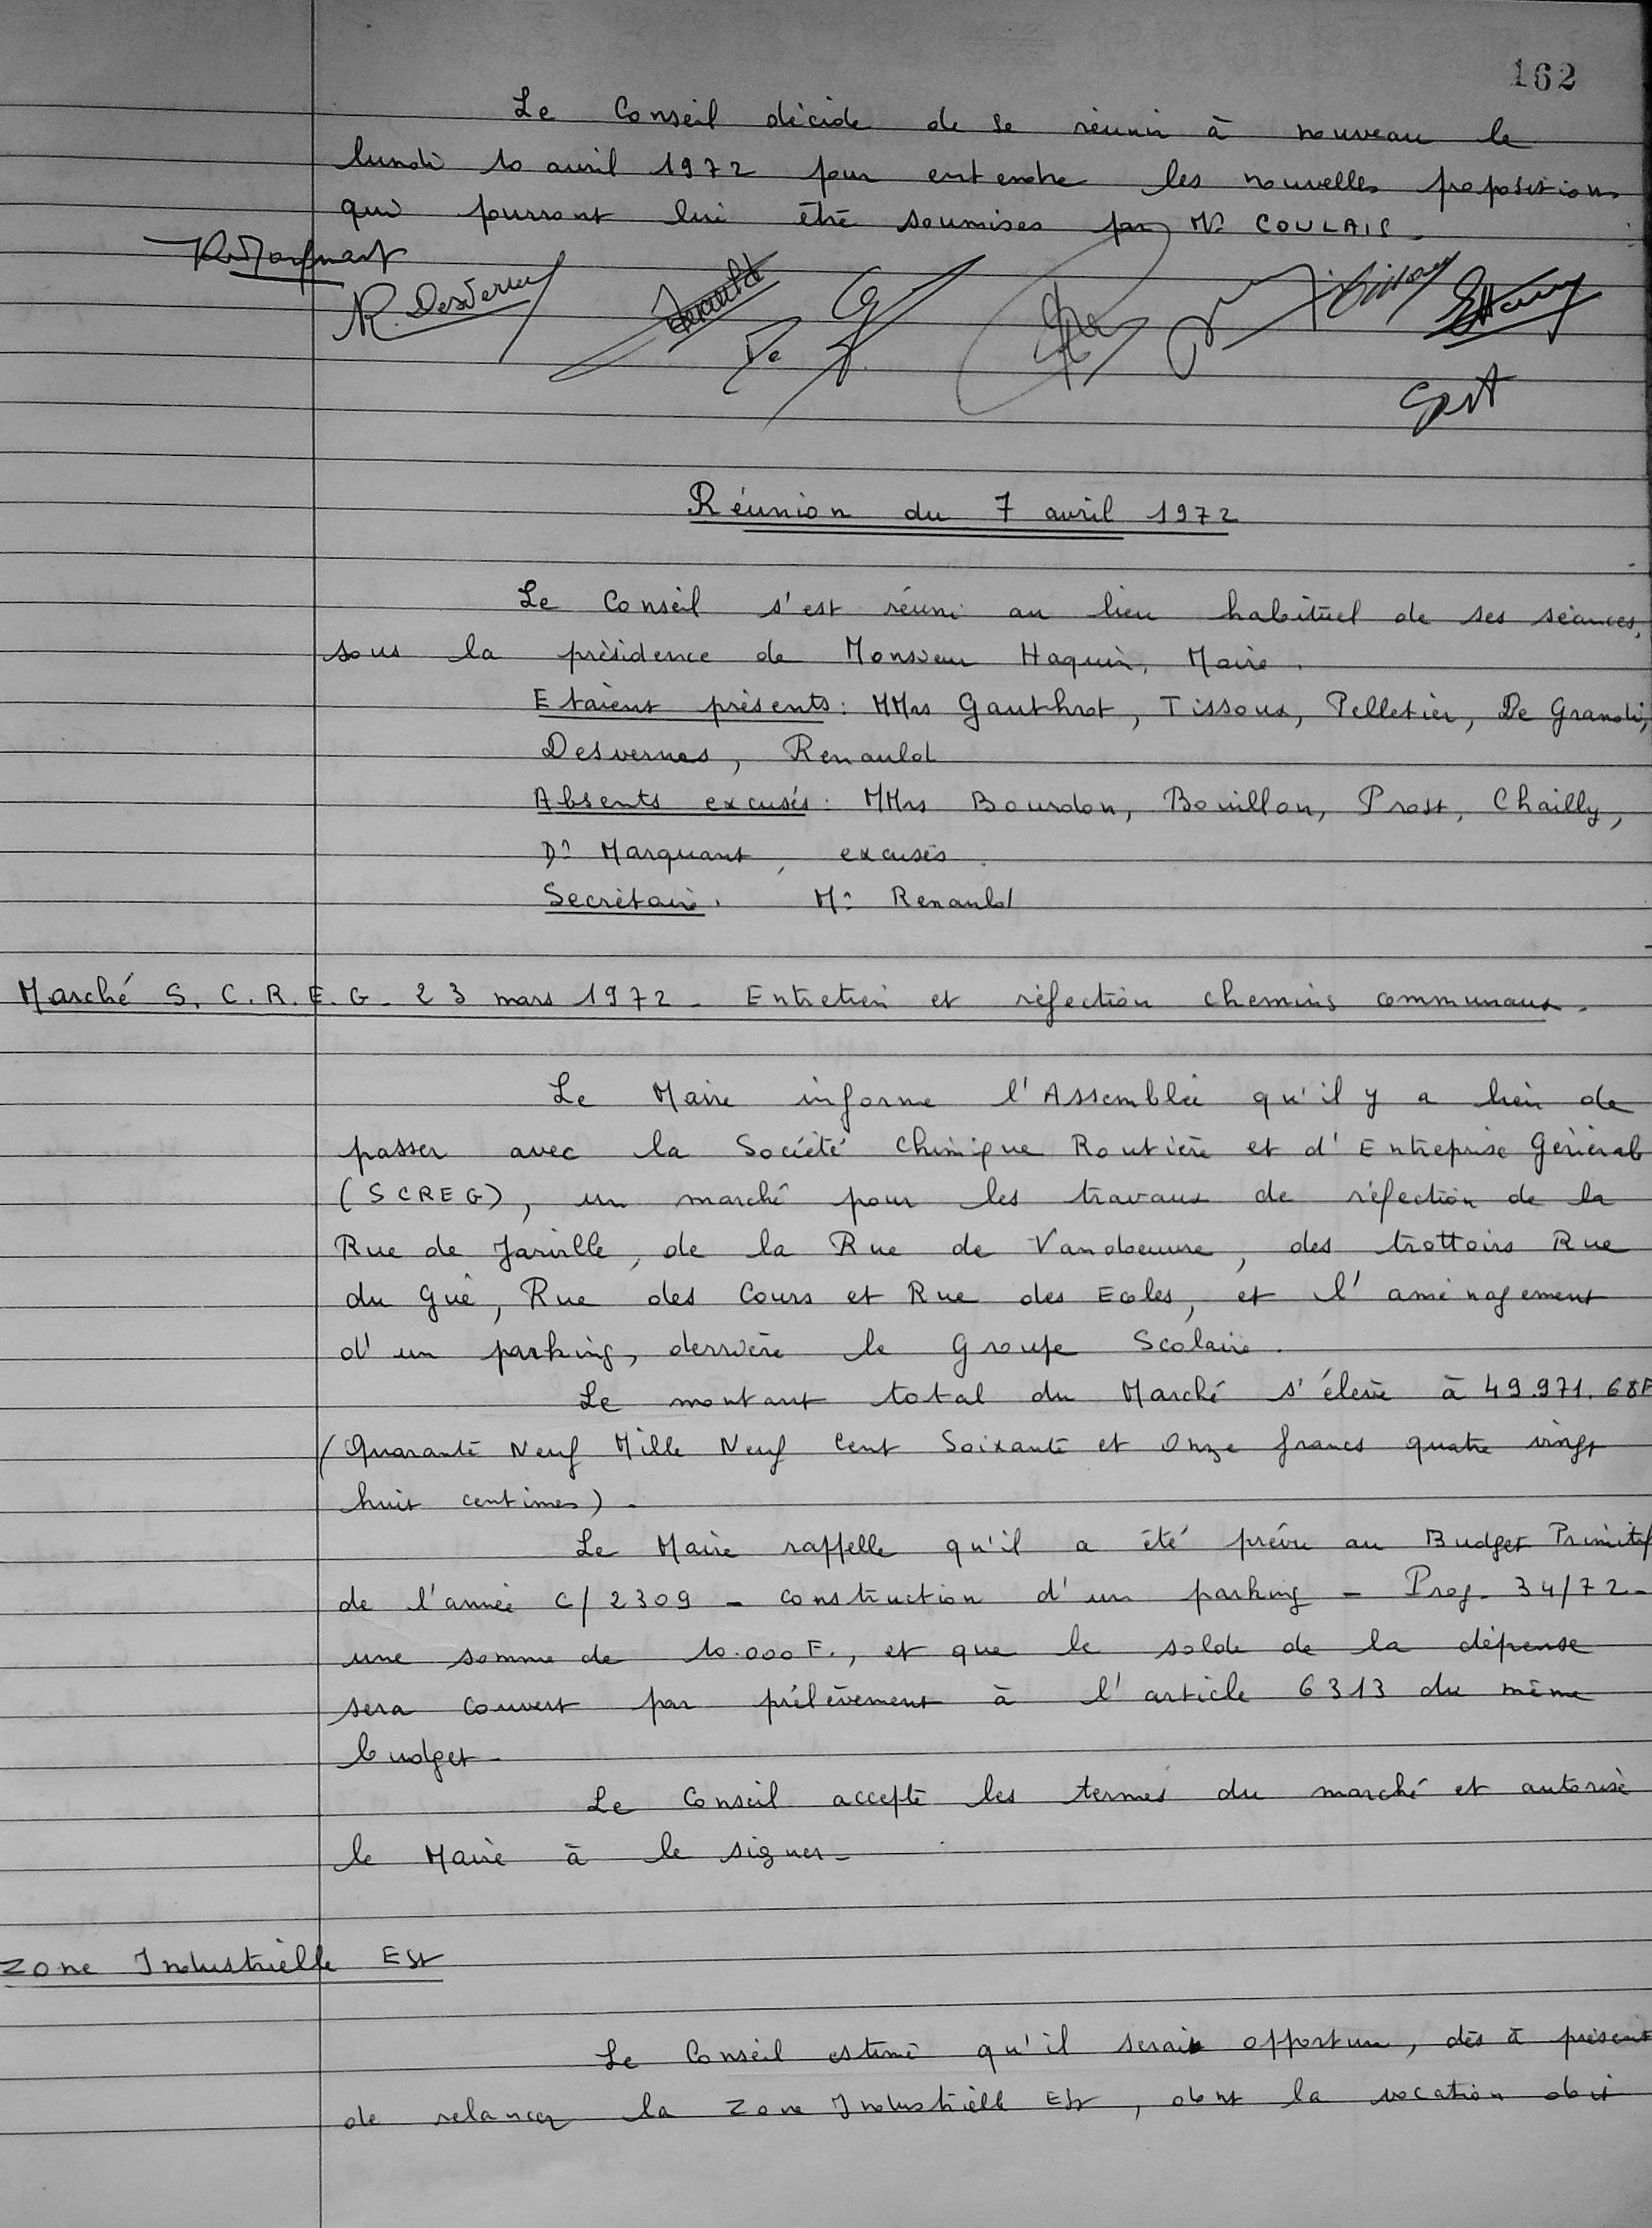 162
Le Conseil décide de se réunir à nouveau le
lundi 10 avril 1972 pour entendre les nouvelles propositions
qui pourront lui être soumises par Mr COULAIS.
R. Marquant
R. Desvernes
Renauld
De G
Réunion du 7 avril 1972
Le Conseil s'est réuni au lieu habituel de ses séances,
sous la présidence de Monsieur Haquin, Maire.
Etaient présents : MMrs Gauthrot, Tissoux, Pelletier, De Grandi,
Desvernes, Renauld
Absents excusés : MMrs Bourdon, Bouillon, Prost, Chailly,
Dr Marquant, excusés.
Secrétaire. Mr Renauld
Marché S.C.R.E.G. 23 mars 1972 - Entretien et réfection chemins communaux.
Le Maire informe l'Assemblée qu'il y a lieu de
passer avec la Société Chimique Routière et d'Entreprise Générale
(SCREG), un marché pour les travaux de réfection de la
Rue de Jarville, de la Rue de Vandoeuvre, des trottoirs Rue
du Gué, Rue des Cours et Rue des Ecoles, et l'aménagement
d'un parking, derrière le Groupe Scolaire.
Le montant total du Marché s'élève à 49.971.68F
(Quarante Neuf Mille Neuf Cent Soixante et Onze francs quatre vingt
huit centimes).
Le Maire rappelle qu'il a été prévu au Budget Primitif
de l'année C/2309 - construction d'un parking - Prog. 34/72 -
une somme de 10.000F., et que le solde de la dépense
sera couvert par prélèvement à l'article 6313 du même
budget -
Le Conseil accepte les termes du marché et autorise
le Maire à le signer -
Zone Industrielle Est
Le Conseil estime qu'il serait opportun, dès à présent
de relancer la Zone Industrielle Est, dont la vocation doit